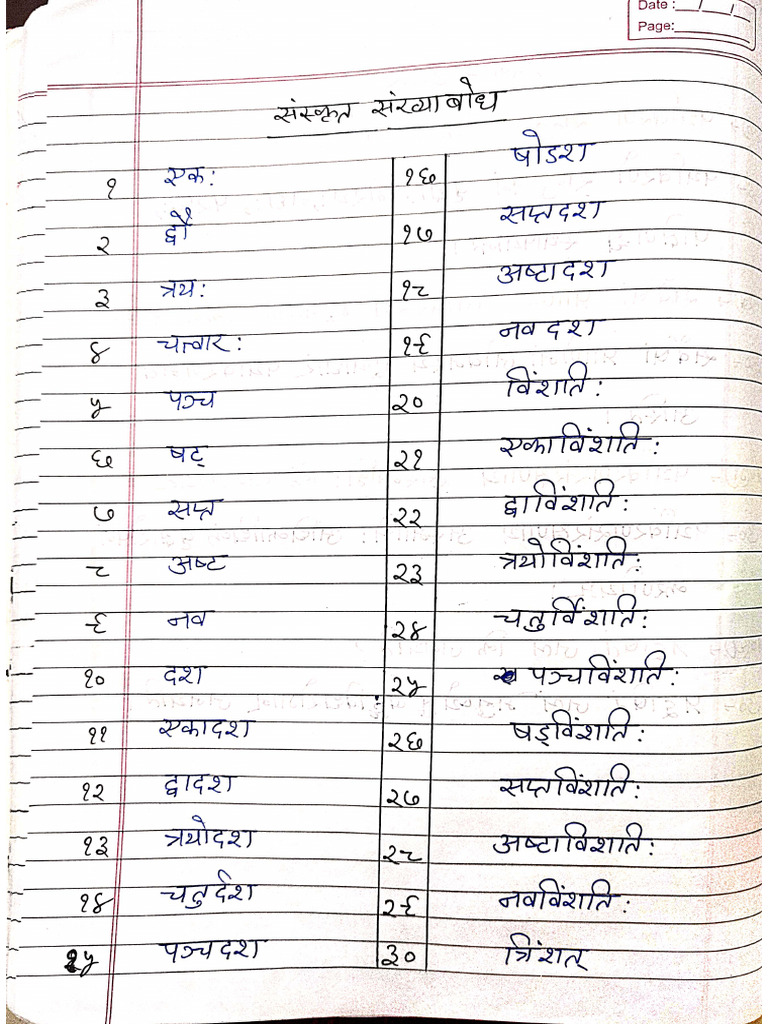 Date :__/__/__
Page:________
संस्कृत संख्याबोध
१ एक: १६ षोडश
२ द्वौ १७ सप्तदश
३ त्रय: १८ अष्टादश
४ चत्वार: १९ नवदश
५ पञ्च २० विंशति:
६ षट् २१ एकाविंशति:
७ सप्त २२ द्वाविंशति:
८ अष्ट २३ त्रयोविंशति:
९ नव २४ चतुर्विंशति:
१० दश २५ पञ्चविंशति:
११ एकादश २६ षड्विंशति:
१२ द्वादश २७ सप्तविंशति:
१३ त्रयोदश २८ अष्टाविंशति:
१४ चतुर्दश २९ नवविंशति:
१५ पञ्चदश ३० त्रिंशत्